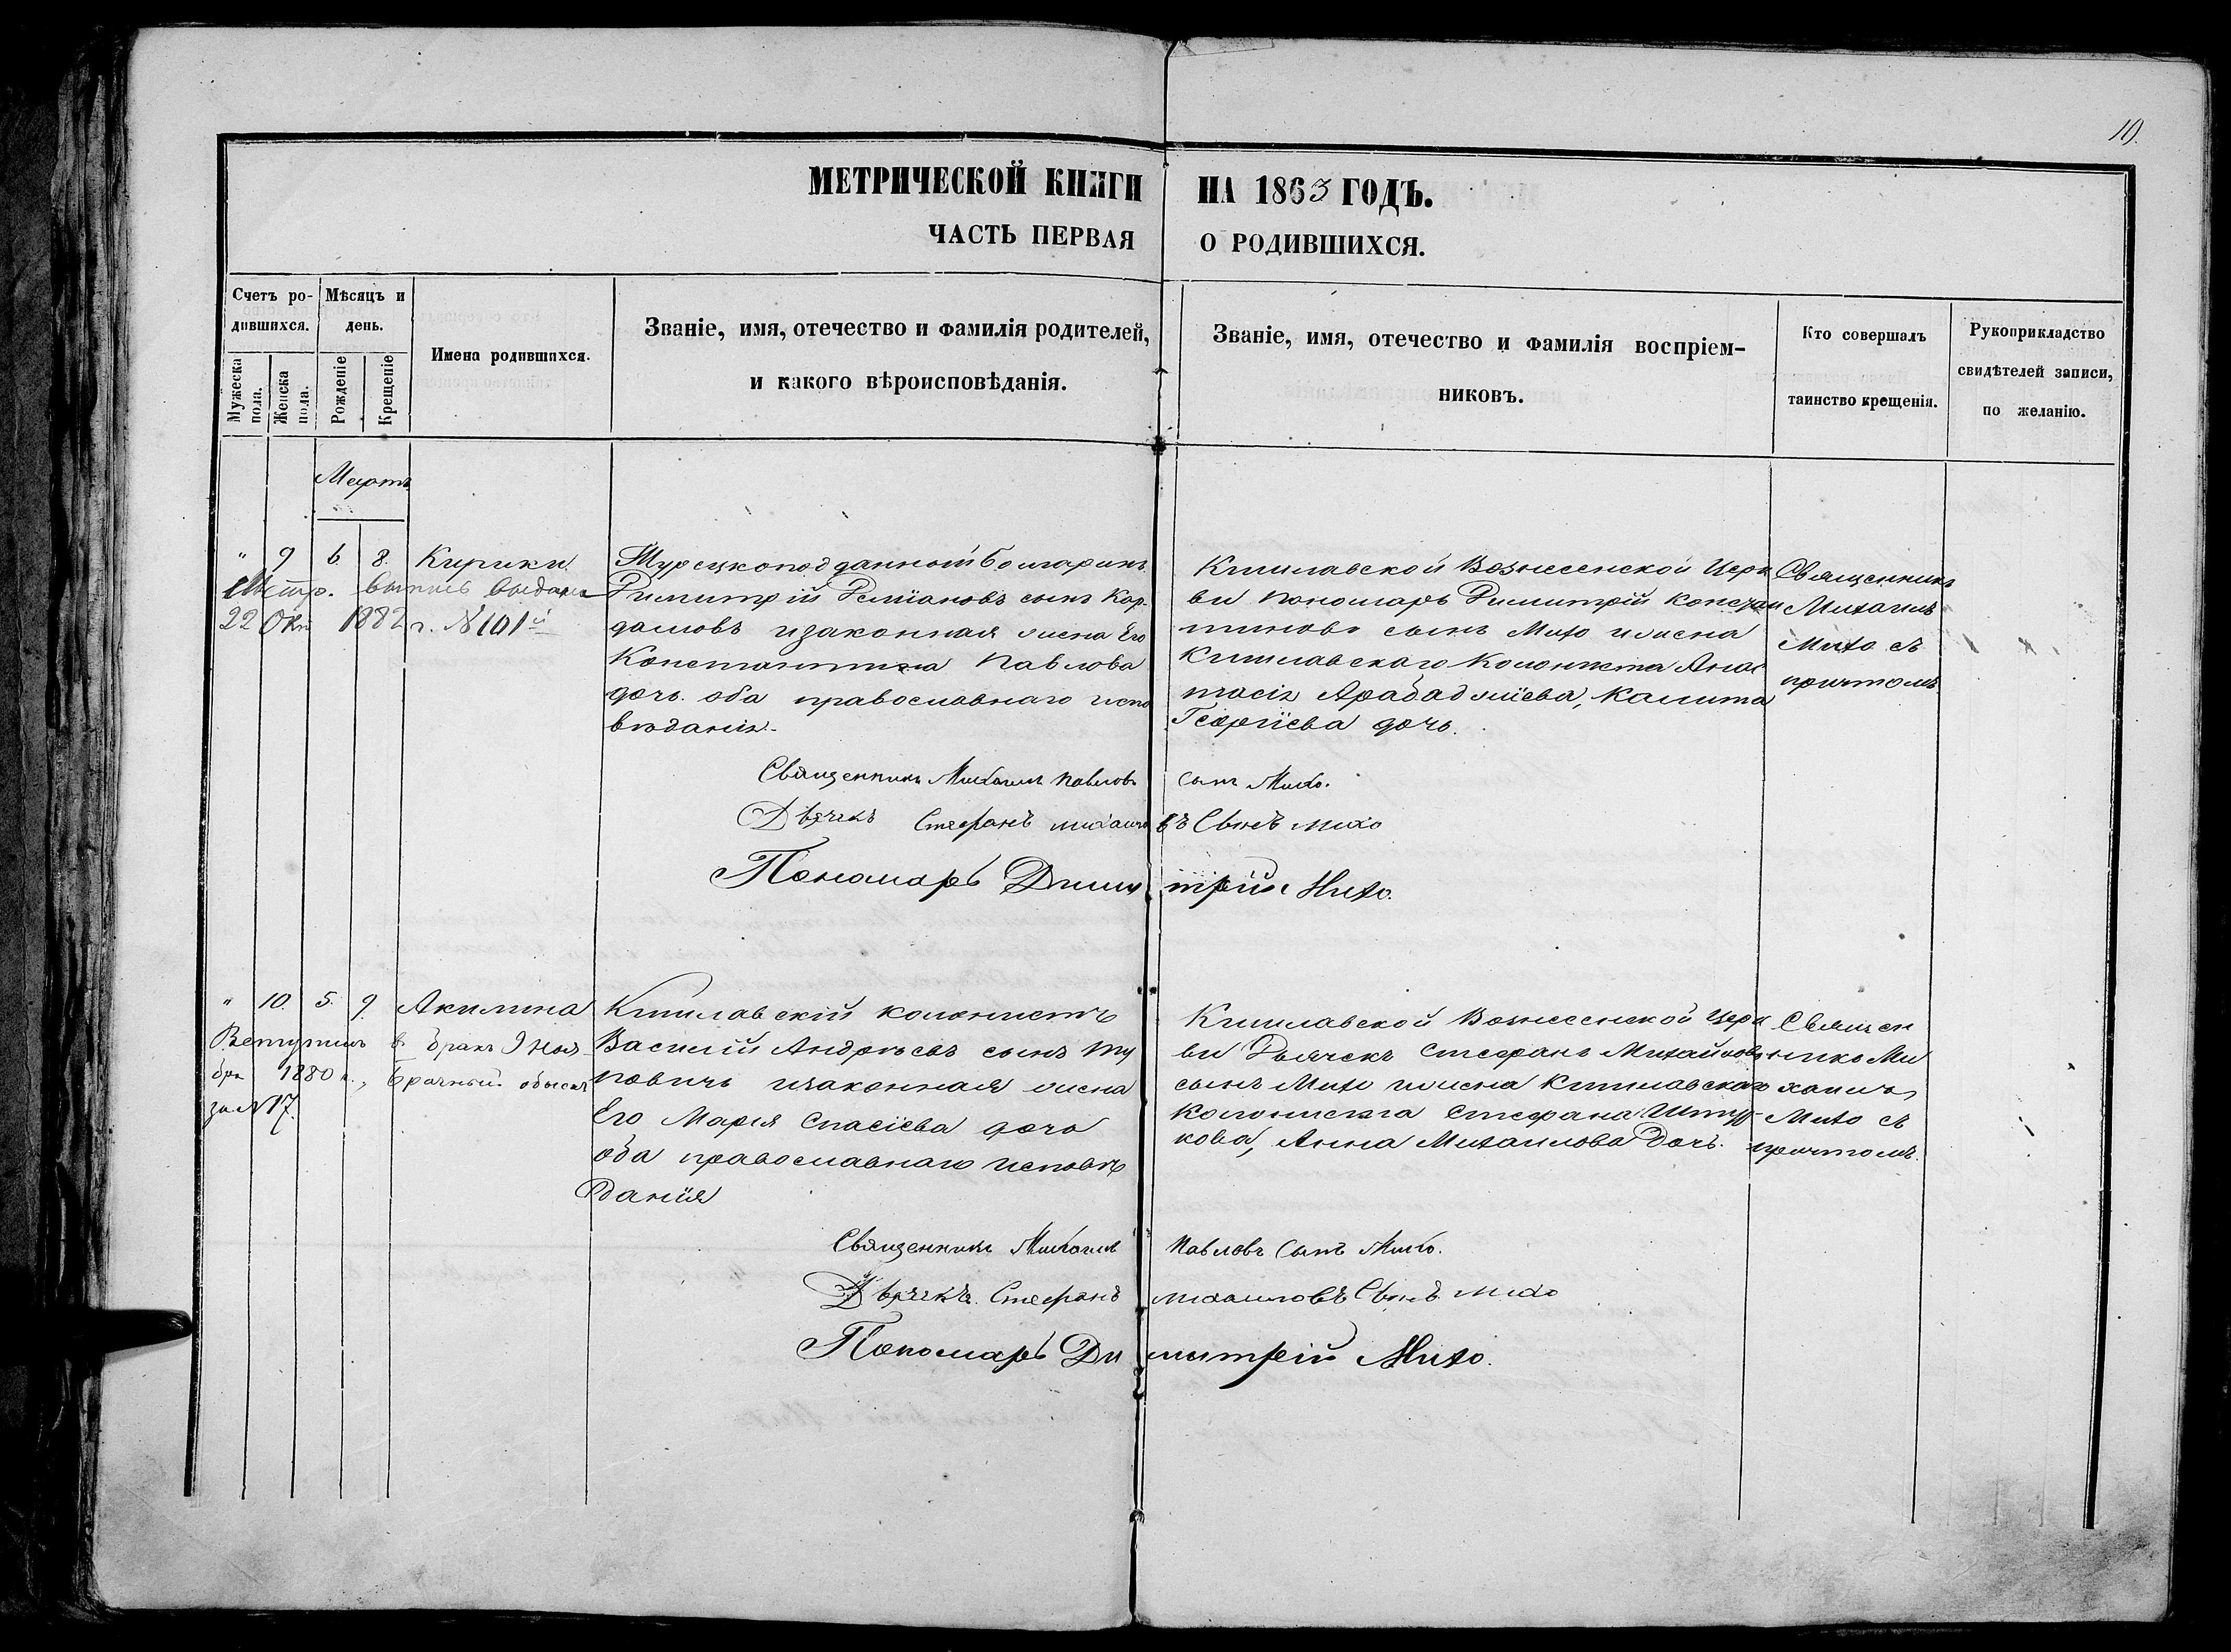 10.
МЕТРИЧЕСКОЙ КНИГИ НА 1863 ГОДЪ.
ЧАСТЬ ПЕРВАЯ О РОДИВШИХСЯ.
Счетъ ро-
дившихся.
Мужеска пола.
Женска пола.
Мѣсяцъ и
день.
Рожденіе
Крещеніе
Имена родившихся.
Званіе, имя, отечество и фамилія родителей,
и какого вѣроисповѣданія.
Званіе, имя, отечество и фамилія воспріем-
никовъ.
Кто совершалъ
таинство крещенія.
Рукоприкладство
свидѣтелей записи,
по желанію.
Мартъ
" 9 6 8. Кирики.
Метр. выпись выдана
22 Окт 1882 г. № 101й
Турецкоподданный Болгаринъ
Димитрій Деміановъ сынъ Кар-
даловъ изаконная жена Его
Константина Павлова
дочь. оба православнаго испо
вѣданія.-
Кишлавской Вознесенской Церк
ви Пономарь Димитрій Констан
тиновъ сынъ Михо ижена
Кишлавскаго Колониста Анас
тасія Арабаджіева, Калита
Георгіева дочь.
Священникъ
Михаилъ
Михо съ
притомъ
Священникъ Михаилъ Павловъ сынъ Михо.
Дьячекъ Стефанъ михаиловъ Сынъ михо
Пономарь Димитрій Михо.
" 10. 5. 9. Акилина
Вступила въ бракъ 9 Ноя
бря 1880 г., брачный обыскъ
за №17.
Кишлавскій колонистъ
Василій Андреевъ сынъ Ту
повичъ изаконная жена
Его Марія Спасіева дочь
оба православнаго исповѣ
данія
Кишлавской Вознесенской Церк
ви Дьячекъ Стефанъ Михайловъ
сынъ Михо ижена Кишлавскаго
Колониста Стефана
кова, Анна Михаилова Дочь.
Священ
никъ Ми
хаилъ
Михо съ
притомъ.
Священникъ Михаилъ Павловъ Сынъ Михо.
Дьячекъ. Стефанъ михаиловъ Сынъ михо
Пономарь Димитрій Михо.